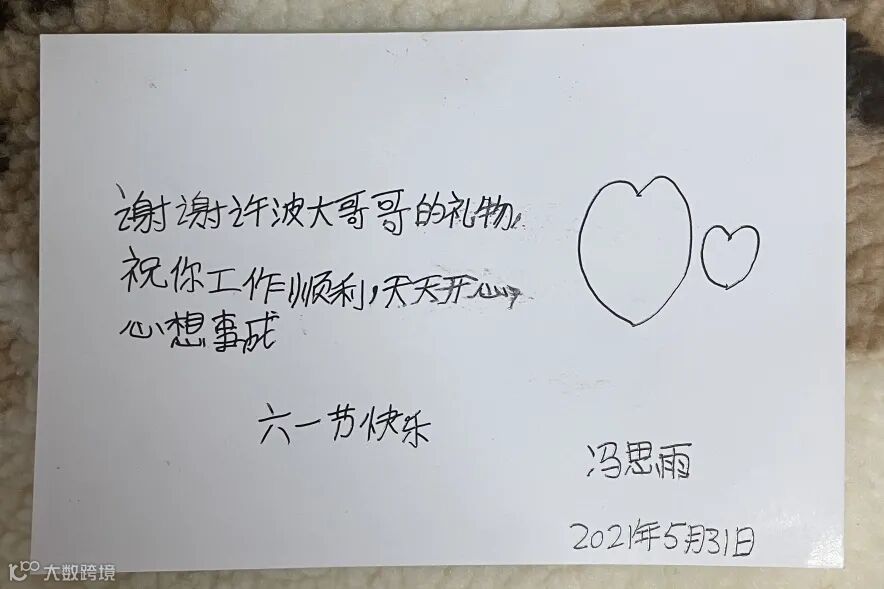 谢谢许波大哥哥的礼物,
祝你工作顺利,天天开心,
心想事成
六一节快乐
冯思雨
2021年5月31日
大数跨境